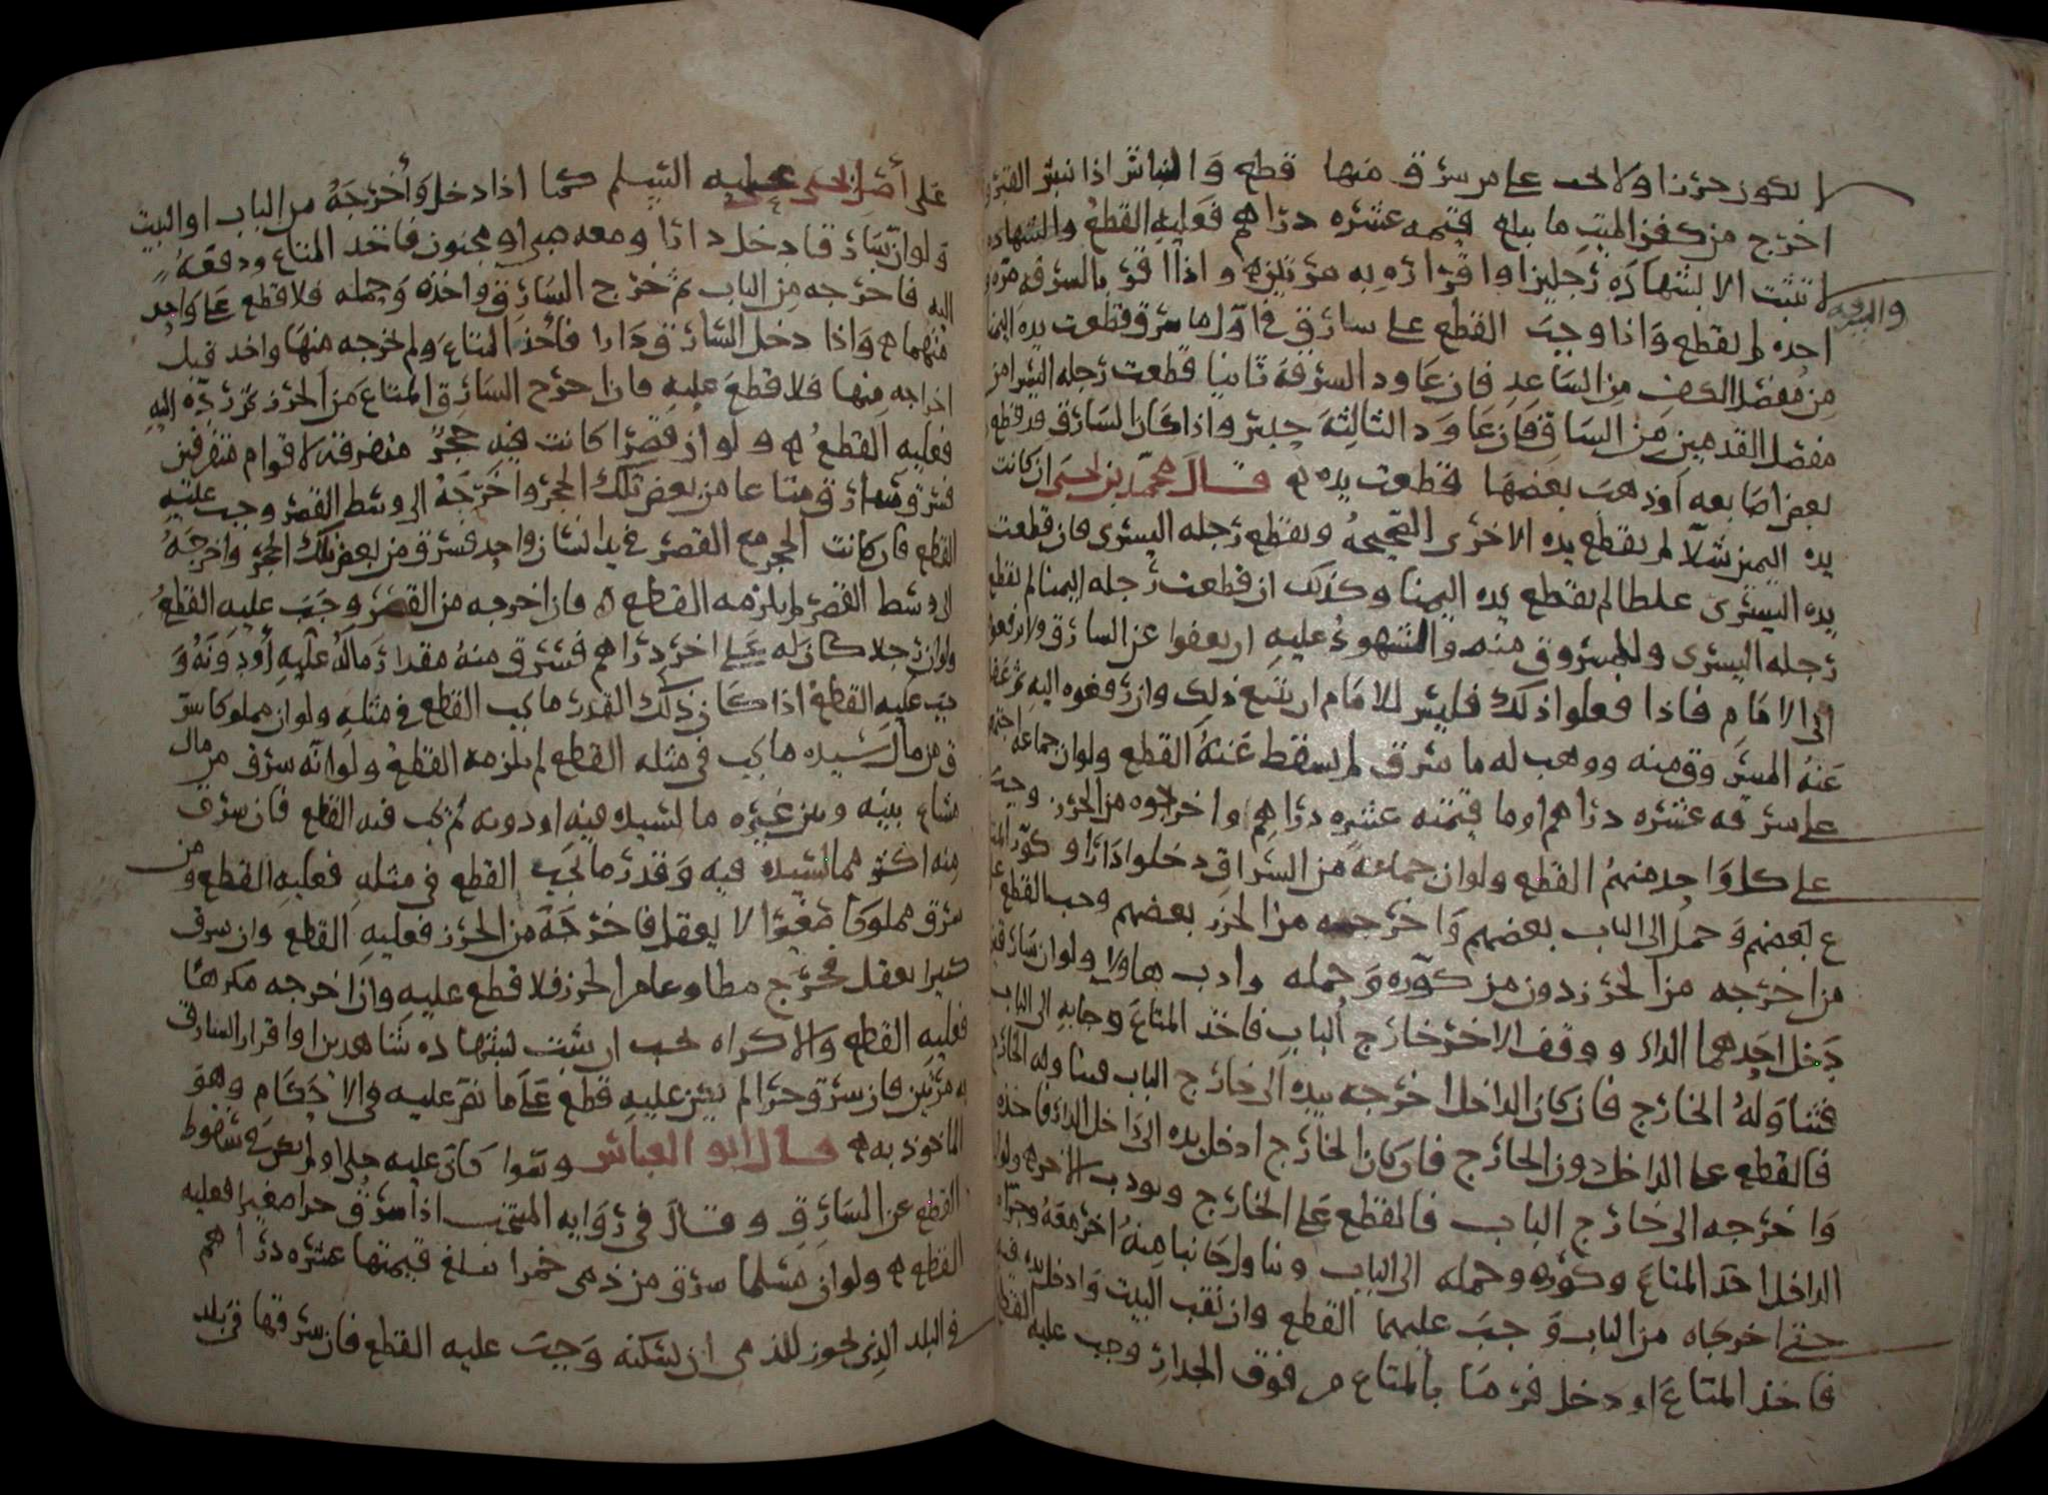 لا يكون حرزا ولا يجب على من سرق منها قطع والنباش اذا نبش القبر و
اخرج من كفن الميت ما يبلغ قيمه عشره دراهم فعليه القطع والشهاده
لا تثبت الا بشهاده رجلين او اقراره به مرتين ه واذا اقر بالسرقه مره
احده لم يقطع واذا وجب القطع على سارق في اول ما سرق قطعت يده اليمنا
من مفصل الكف من الساعد فان عاود السرقه ثانيا قطعت رجله اليسرا من
مفصل القدمين من الساق فان عاود الثالثه حبس واذا كان السارق قد قطع
بعض اصابعه او ذهب بعضها قطعت يده ه قال محمد بن يحيى ان كانت
يده اليمين شلا لم يقطع يده الاخرى الصحيحه ويقطع رجله اليسرى فان قطعت
يده اليسرى غلطا لم يقطع يده اليمنا وكذلك ان قطعت رجله اليمنا لم يقطع
رجله اليسرى وللمسروق منه والشهود عليه ان يعفوا عن السارق ولا يرفعوه
الى الامام فاذا فعلوا ذلك فليس للامام ان يتبع ذلك وان رفعوه اليه ثم عفا
عنه المسروق منه ووهب له ما سرق لم يسقط عنه القطع ولو ان جماعه اجتمعوا
على سرقه عشره دراهم او ما قيمته عشره دراهم واخرجوه من الحرز وجب
على كل واحد منهم القطع ولو ان جماعة من السراق دخلوا دارا وكور المتا
ع بعضهم وحمل الى الباب بعضهم واخرجه من الحرز بعضهم وجب القطع على
من اخرجه من الحرز دون من كوره وحمله وادب هاولا ولو ان سارقين
دخل احدهما الدار ووقف الاخر خارج الباب فاخذ المتاع وجا به الى الباب
فتناوله الخارج فان كان الداخل اخرجه بيده الى خارج الباب فتناوله الخارج
فالقطع على الداخل دون الخارج فان كان الخارج ادخل يده الى داخل الدار فاخذه
واخرجه الى خارج الباب فالقطع على الخارج ويودب الاخر ه ولو ان
الداخل اخذ المتاع وكوره وحمله الى الباب وتناول جانبا منه اخر معه وجراه
حتى اخرجاه من الباب وجب عليهما القطع وان نقب البيت وادخل يده فيه
فاخذ المتاع او دخل فرما بالمتاع من فوق الجدار وجب عليه القطع
على أصل يحيى عليه السلم كما اذا دخل وأخرجه من الباب او البيت
ولو ان سارقا دخل دارا ومعه صبي او مجنون فاخذ المتاع ودفعه
اليه فاخرجه من الباب ثم خرج السارق واخذه وحمله فلا قطع على واحد
منهما ه واذا دخل السارق دارا فأخذ المتاع ولم يخرجه منها واخذ قبل
اخراجه منها فلا قطع عليه فان اخرج السارق المتاع من الحرز ثم رده اليه
فعليه القطع ه ولو ان قصرا كانت فيه حجر متفرقة لاقوام متفرقين
فسرق سارق متاعا من بعض تلك الحجر واخرجه الى وسط القصر وجب عليه
القطع فان كانت الحجر مع القصر في يد انسان واحد فسرق من بعض تلك الحجر واخرجه
الى وسط القصر لم يلزمه القطع ه فان اخرجه من القصر وجب عليه القطع
ولو ان رجلا كان له على اخر دراهم فسرق منه مقدار ماله عليه أو دونه و
جب عليه القطع اذا كان ذلك القدر ما يجب القطع في مثله ولو ان مملوكا سر
ق من مال سيده ما يجب في مثله القطع لم يلزمه القطع ولو انه سرق من مال
مشاع بينه وبين غيره ما لسيده فيه او دونه لم يجب فيه القطع فان سرق
منه اكثر مما لسيده فيه وقدر ما يجب القطع في مثله فعليه القطع ومن
سرق مملوكا صغيرا لا يعقل فاخرجه من الحرز فعليه القطع وان سرق
كبيرا يعقل فخرج مطاوعا من الحرز فلا قطع عليه وان اخرجه مكرها
فعليه القطع والاكراه يجب ان يثبت بشهاده شاهدين او اقرار السارق
به مرتين فان سرق حرا لم يتبين عليه قطع على ما نص عليه في الاحكام وهو
الماخوذ به ه قال ابو العباس وسوا كان عليه حلي او لم يكن في سقوط
القطع عن السارق وقال في رواية المنتخب اذا سرق حرا صغيرا فعليه
القطع ه ولو ان مسلما سرق من ذمي خمرا تبلغ قيمتها عشره دراهم
في البلد الذي يجوز للذمي ان يسكنه وجب عليه القطع فان سرقها في بلد